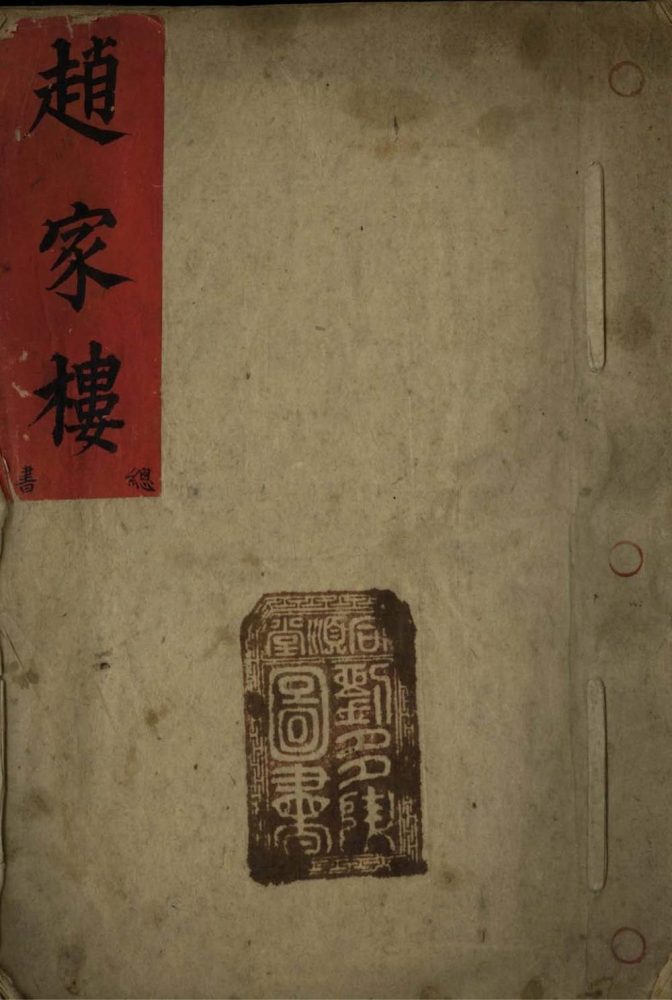 趙家樓
總書
劉多
圖書